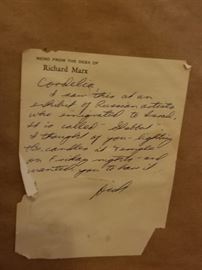 MEMO FROM THE DESK OF
Richard Marx
Cordelia,
I saw this at an
exhibit of Russian artists
who emigrated to Israel.
It is called "Sabbat".
I thought of you lighting
the candles at Temple
on Friday nights and
wanted you to have it.
Dick